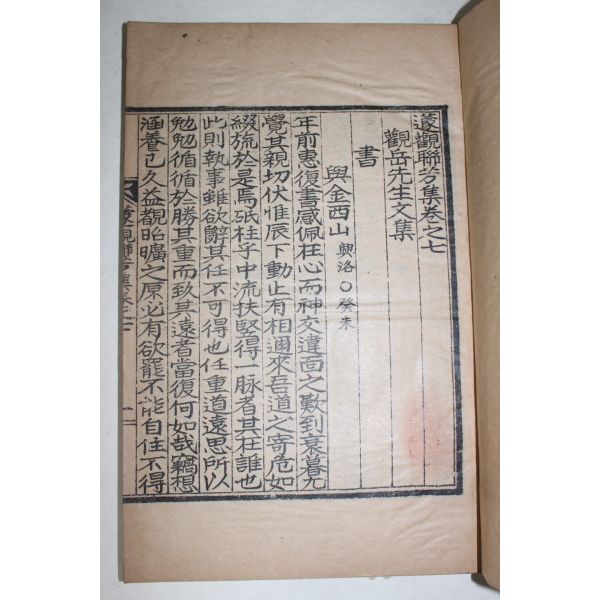 邃觀聯芳集卷之七
觀岳先生文集
書
與金西山 興洛○癸未
年前惠復書感佩在心而神交違面之歎到衰暮尤
覺其親切伏惟辰下動止有相邇來吾道之寄危如
綴旒於是焉砥柱乎中流扶竪得一脉者其在誰也
此則執事雖欲辭其任不可得也任重道遠思所以
勉勉循循於勝其重而致其遠者當復何如哉竊想
涵養已久益覩昭曠之原必有欲罷不能自住不得